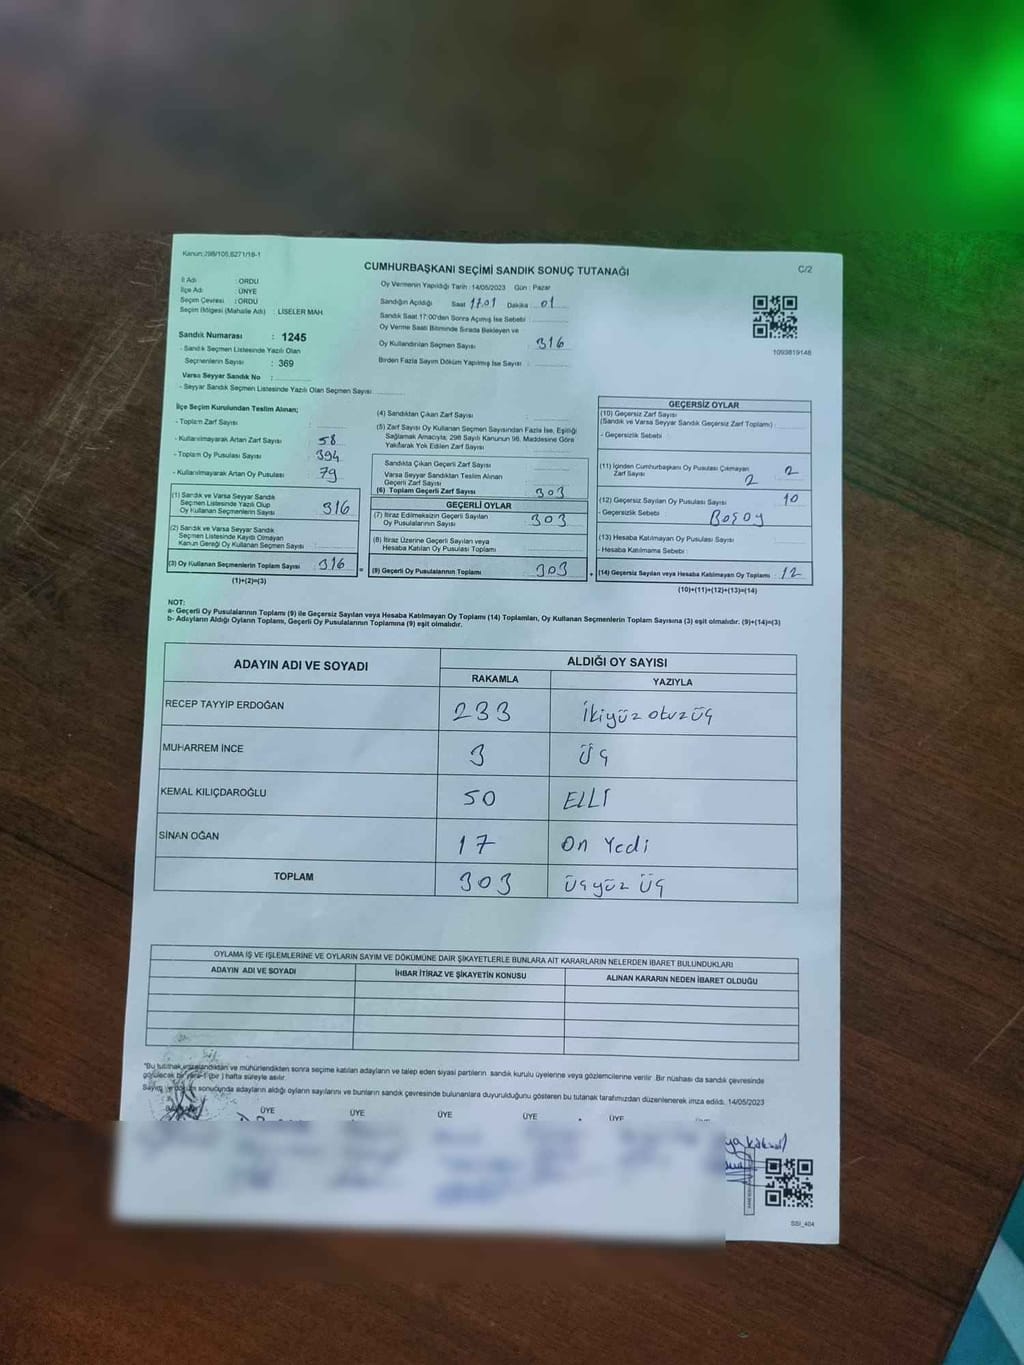 Kanun:298/105,6271/18-1
CUMHURBAŞKANI SEÇİMİ SANDIK SONUÇ TUTANAĞI
C/2
İl Adı : ORDU
İlçe Adı : ÜNYE
Seçim Çevresi : ORDU
Seçim Bölgesi (Mahalle Adı) : LİSELER MAH.
Sandık Numarası : 1245
- Sandık Seçmen Listesinde Yazılı Olan
Seçmenlerin Sayısı : 369
Varsa Seyyar Sandık No :
- Seyyar Sandık Seçmen Listesinde Yazılı Olan Seçmen Sayısı
Oy Vermenin Yapıldığı Tarih : 14/05/2023 Gün : Pazar
Sandığın Açıldığı Saat 17.01 Dakika : 01
Sandık Saat 17:00'den Sonra Açılmış İse Sebebi :
Oy Verme Saati Bitiminde Sırada Bekleyen ve
Oy Kullandırılan Seçmen Sayısı : 316
Birden Fazla Sayım Döküm Yapılmış İse Sayısı :
1093819148
İlçe Seçim Kurulundan Teslim Alınan;
- Toplam Zarf Sayısı :
- Kullanılmayarak Artan Zarf Sayısı : 58
- Toplam Oy Pusulası Sayısı : 394
- Kullanılmayarak Artan Oy Pusulası : 79
(1) Sandık ve Varsa Seyyar Sandık
Seçmen Listesinde Yazılı Olup
Oy Kullanan Seçmenlerin Sayısı : 316
(2) Sandık ve Varsa Seyyar Sandık
Seçmen Listesinde Kaydı Olmayan
Kanun Gereği Oy Kullanan Seçmen Sayısı :
(3) Oy Kullanan Seçmenlerin Toplam Sayısı : 316
(1)+(2)=(3)
(4) Sandıktan Çıkan Zarf Sayısı :
(5) Zarf Sayısı Oy Kullanan Seçmen Sayısından Fazla İse, Eşitliği
Sağlamak Amacıyla, 298 Sayılı Kanunun 98. Maddesine Göre
Yakılarak Yok Edilen Zarf Sayısı :
Sandıkta Çıkan Geçerli Zarf Sayısı :
Varsa Seyyar Sandıktan Teslim Alınan
Geçerli Zarf Sayısı :
(6) Toplam Geçerli Zarf Sayısı : 303
GEÇERLİ OYLAR
(7) İtiraz Edilmeksizin Geçerli Sayılan
Oy Pusulalarının Sayısı : 303
(8) İtiraz Üzerine Geçerli Sayılan veya
Hesaba Katılan Oy Pusulası Toplamı :
= (9) Geçerli Oy Pusulalarının Toplamı : 303 +
GEÇERSİZ OYLAR
(10) Geçersiz Zarf Sayısı
(Sandık ve Varsa Seyyar Sandık Geçersiz Zarf Toplamı) :
- Geçersizlik Sebebi :
(11) İçinden Cumhurbaşkanı Oy Pusulası Çıkmayan
Zarf Sayısı : 2
2
(12) Geçersiz Sayılan Oy Pusulası Sayısı : 10
- Geçersizlik Sebebi :
(13) Hesaba Katılmayan Oy Pusulası Sayısı :
- Hesaba Katılmama Sebebi :
(14) Geçersiz Sayılan veya Hesaba Katılmayan Oy Toplamı : 12
(10)+(11)+(12)+(13)=(14)
NOT:
a- Geçerli Oy Pusulalarının Toplamı (9) ile Geçersiz Sayılan veya Hesaba Katılmayan Oy Toplamı (14) Toplamları, Oy Kullanan Seçmenlerin Toplam Sayısına (3) eşit olmalıdır. (9)+(14)=(3)
b- Adayların Aldığı Oyların Toplamı, Geçerli Oy Pusulalarının Toplamına (9) eşit olmalıdır.
ADAYIN ADI VE SOYADI ALDIĞI OY SAYISI
RAKAMLA YAZIYLA
RECEP TAYYİP ERDOĞAN 233 İkiyüz otuz üç
MUHARREM İNCE 3 Üç
KEMAL KILIÇDAROĞLU 50 ELLİ
SİNAN OĞAN 17 On Yedi
TOPLAM 303 Üçyüz Üç
OYLAMA İŞ VE İŞLEMLERİNE VE OYLARIN SAYIM VE DÖKÜMÜNE DAİR ŞİKAYETLERLE BUNLARA AİT KARARLARIN NELERDEN İBARET BULUNDUKLARI
ADAYIN ADI VE SOYADI İHBAR İTİRAZ VE ŞİKAYETİN KONUSU ALINAN KARARIN NEDEN İBARET OLDUĞU
"Bu tutanak imzalandıktan ve mühürlendikten sonra seçime katılan adayların ve talep eden siyasi partilerin sandık kurulu üyelerine veya gözlemcilerine verilir. Bir nüshası da sandık çevresinde
görülecek bir yere 1 (bir) hafta süreyle asılır.
Sayım ve döküm sonucunda adayların aldığı oyların sayılarını ve bunların sandık çevresinde bulunanlara duyurulduğunu gösteren bu tutanak tarafımızdan düzenlenerek imza edildi. 14/05/2023
ÜYE ÜYE ÜYE ÜYE ÜYE
SSI_404